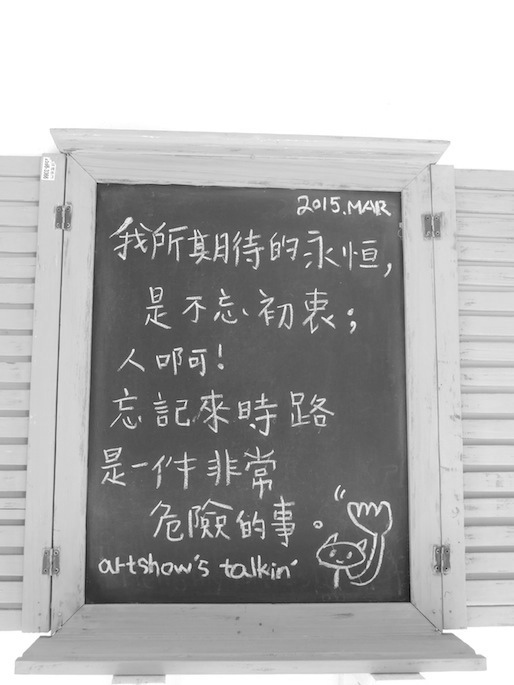 2015.MAR
我所期待的永恒,
是不忘初衷;
人啊!
忘記來時路
是一件非常
危險的事。
artshow's talkin'